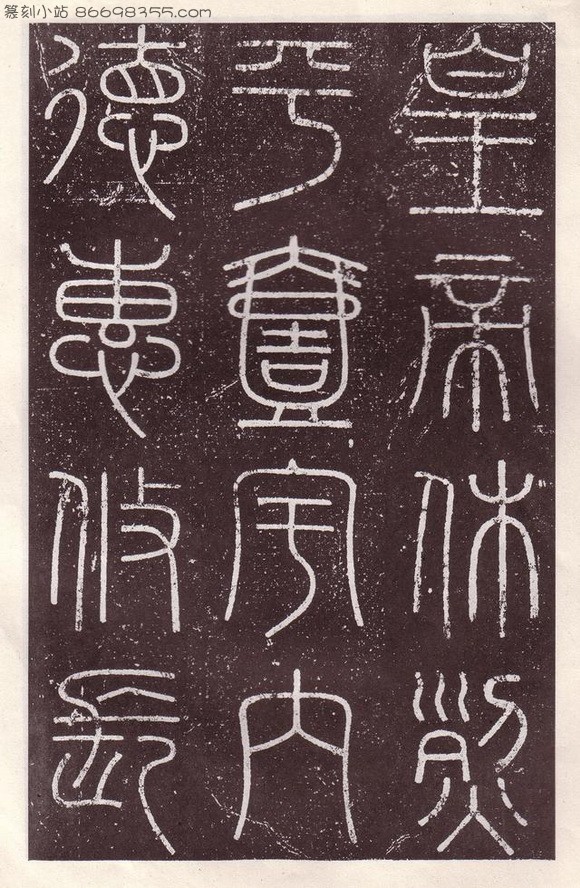 篆刻小站 86698355.com
皇帝休烈
平壹宇内
德惠攸長